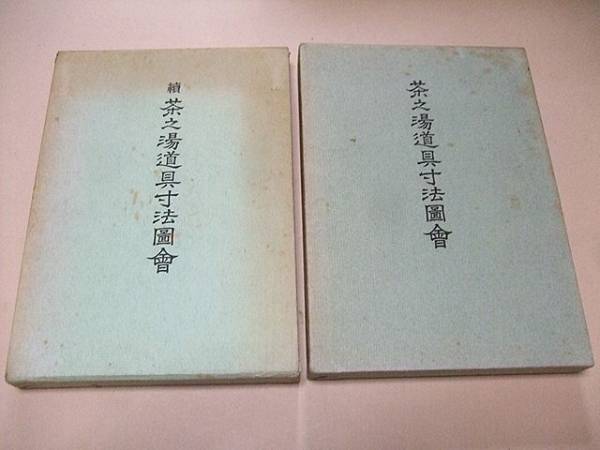 續
茶之湯道具寸法圖會
茶之湯道具寸法圖會